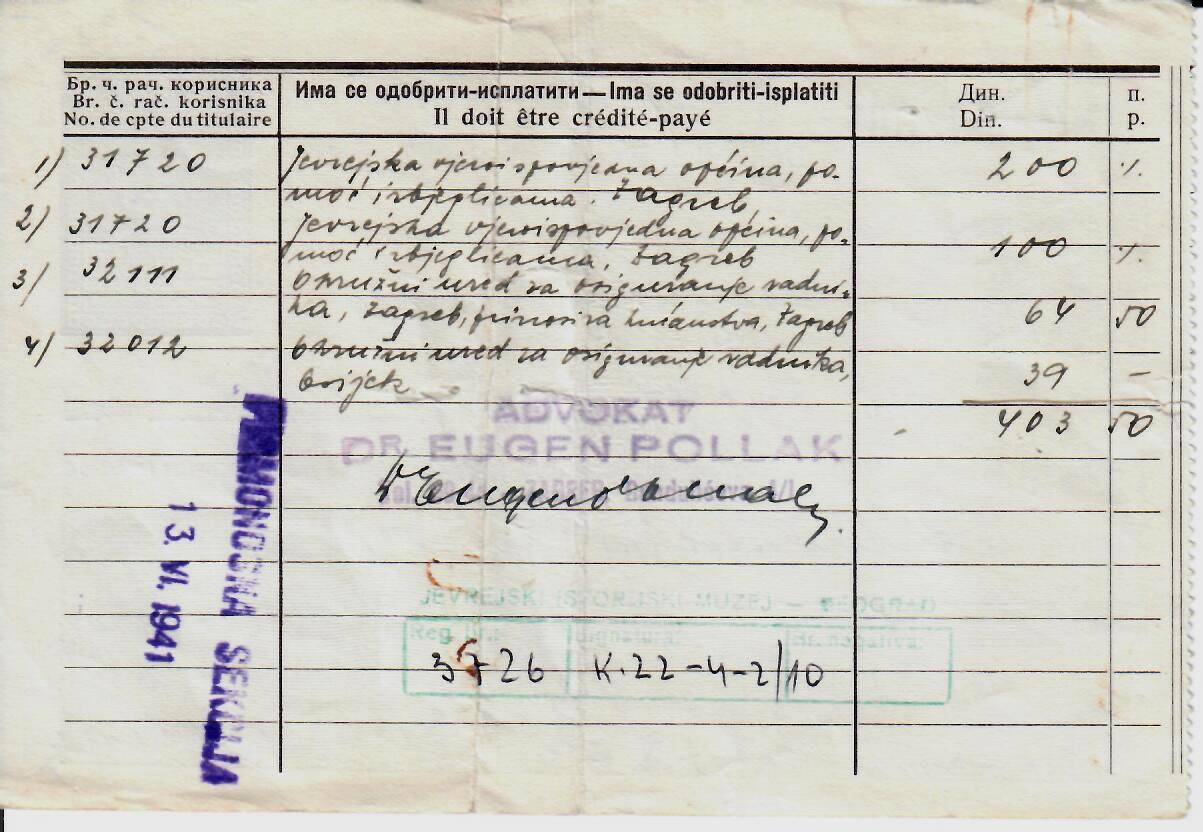 Бр. ч. рач. корисника
Br. č. rač. korisnika
No. de cpte du titulaire
Има се одобрити-исплатити — Ima se odobriti-isplatiti
Il doit être crédité-payé
Дин. п.
Din. p.
1) 31720 Jevrejska vjeroispovjedna općina, po-
moć izbjeglicama. Zagreb 200
2) 31720 Jevrejska vjeroispovjedna općina, po-
moć izbjeglicama, Zagreb 100
3) 32111 Okružni ured za osiguranje radni-
ka, Zagreb, Zagreb 64 50
4) 32012 Okružni ured za osiguranje radnika,
Osijek 39 –
403 50
ADVOKAT
DR EUGEN POLLAK
Dr Eugen
SEKCIJA
13. VI. 1941
JEVREJSKI ISTORIJSKI MUZEJ — BEOGRAD
Reg. br.: Signatura: Br. negativa:
3726 K.22-4-2/10